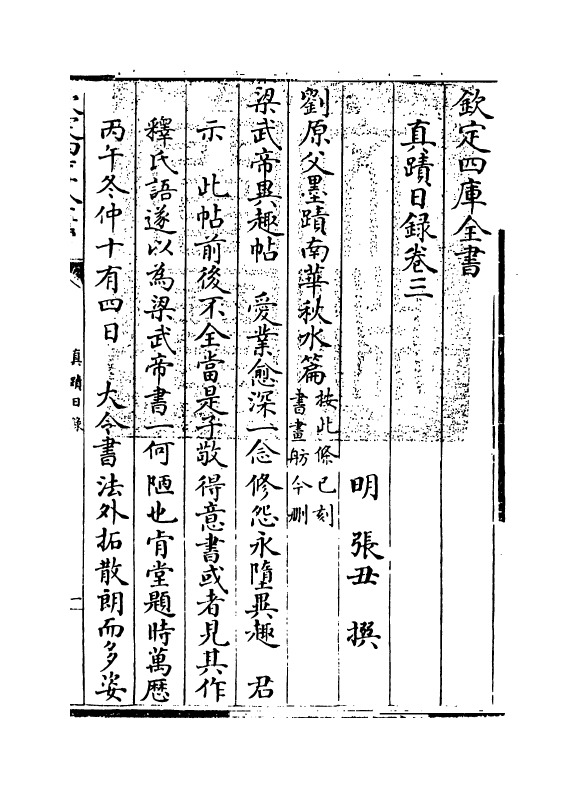 欽定四庫全書
真蹟日録卷三
明 張丑 撰
劉原父墨蹟南華秋水篇按此條已刻
書畫舫今刪
梁武帝異趣帖 愛業愈深一念修怨永墮異趣 君
示 此帖前後不全當是子敬得意書或者見其作
釋氏語遂以為梁武帝書一何陋也肯堂題時萬歴
丙午冬仲十有四日 大令書法外拓散朗而多姿
真蹟日録
一